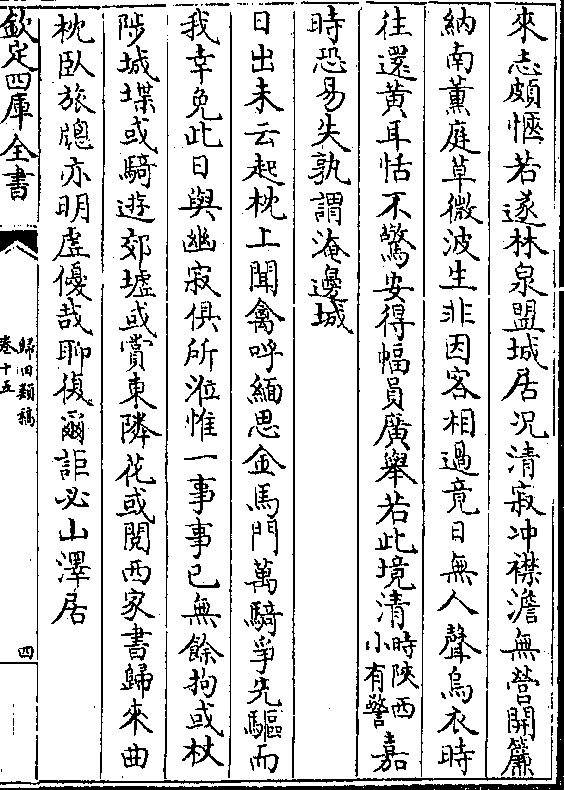 來志頗愜若遂林泉盟城居况清寂冲襟澹無營開簾
納南薰庭草微波生非因客相過竟日無人聲烏衣時
往還黄耳恬不驚安得幅員廣舉若此境清時陜西小有警嘉
時恐易失孰謂淹邊城
日出未云起枕上聞禽呼緬思金馬門萬騎爭先驅而
我幸免此日與幽寂俱所涖惟一事事已無餘拘或杖
陟城堞或騎遊郊墟或賞東隣花或閲西家書歸來曲
枕臥旅牕亦明虚優哉聊復爾詎必山澤居
欽定四庫全書
歸田類稿
卷十五
四